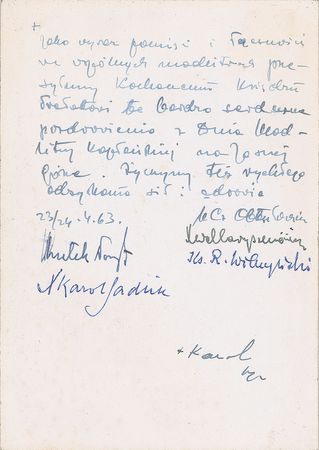 +
Jako wyraz pamięci i łączności
we wspólnych modlitwach prze
syłamy Kochanemu Księdzu
Prałatowi bardzo serdeczne
pozdrowienia z Dnia Mod-
litwy Kapłańskiej na Jasnej
Górze. Życzymy też rychłego
odzyskania sił i zdrowia
23/24.4.63.
Ks. R.
Karol
+ Karol